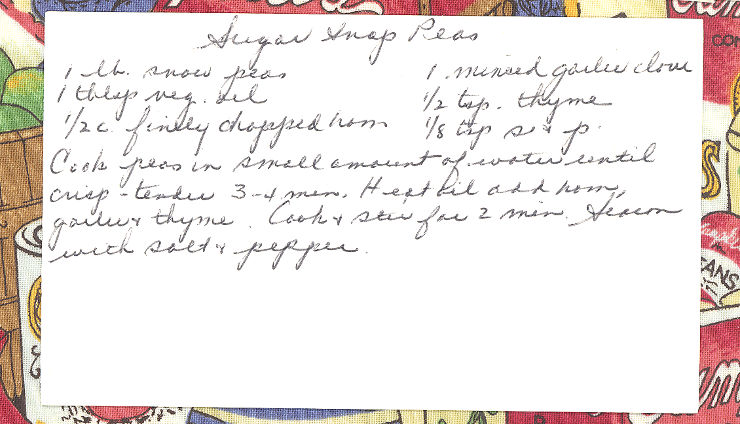 Sugar Snap Peas
1 lb. snow peas
1 minced garlic clove
1 tblsp veg. oil
1/2 tsp. thyme
1/2 c. finely chopped ham
1/8 tsp s & p.
Cook peas in small amount of water until
crisp-tender 3-4 min. Heat oil add ham,
garlic & thyme. Cook & stir for 2 min. Season
with salt & pepper.